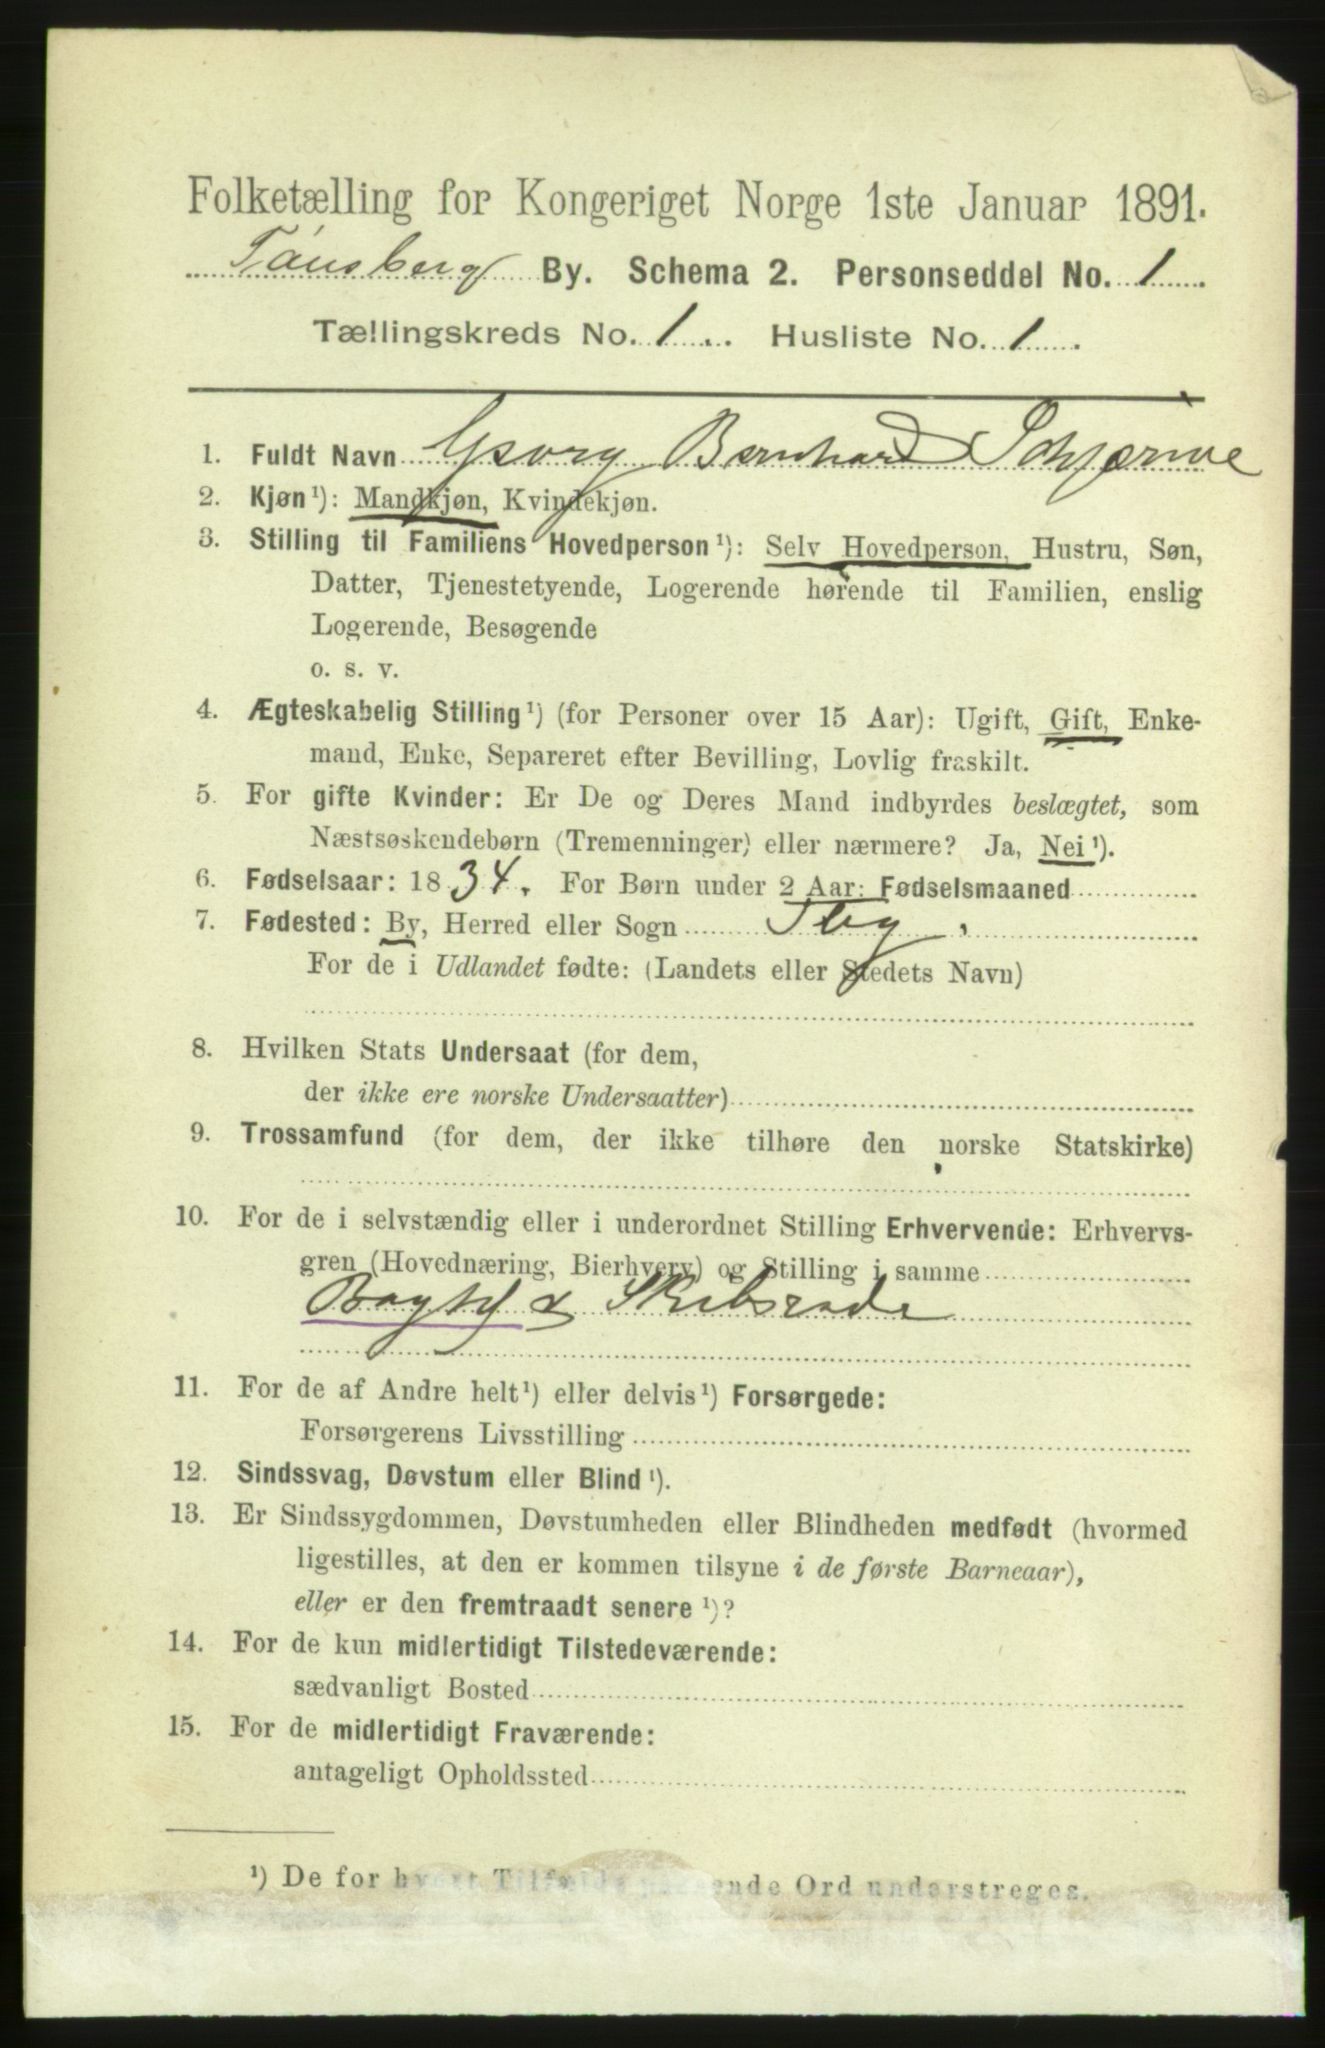 Folketælling for Kongeriget Norge 1ste Januar 1891.
Tønsberg By. Schema 2. Personseddel No. 1
Tællingskreds No. 1 Husliste No. 1
1. Fuldt Navn Georg Bernhard Schjerve
2. Kjøn ¹): Mandkjøn, Kvindekjøn.
3. Stilling til Familiens Hovedperson ¹): Selv Hovedperson, Hustru, Søn,
Datter, Tjenestetyende, Logerende hørende til Familien, enslig
Logerende, Besøgende
o. s. v.
4. Ægteskabelig Stilling ¹) (for Personer over 15 Aar): Ugift, Gift, Enke-
mand, Enke, Separeret efter Bevilling, Lovlig fraskilt.
5. For gifte Kvinder: Er De og Deres Mand indbyrdes beslægtet, som
Næstsøskendebørn (Tremenninger) eller nærmere? Ja, Nei ¹).
6. Fødselsaar: 1834. For Børn under 2 Aar: Fødselsmaaned
7. Fødested: By, Herred eller Sogn Tbg.
For de i Udlandet fødte: (Landets eller Stedets Navn)
8. Hvilken Stats Undersaat (for dem,
der ikke ere norske Undersaatter)
9. Trossamfund (for dem, der ikke tilhøre den norske Statskirke)
10. For de i selvstændig eller i underordnet Stilling Erhvervende: Erhvervs-
gren (Hovednæring, Bierhverv) og Stilling i samme
& Skibsrede
11. For de af Andre helt ¹) eller delvis ¹) Forsørgede:
Forsørgerens Livsstilling
12. Sindssvag, Døvstum eller Blind ¹).
13. Er Sindssygdommen, Døvstumheden eller Blindheden medfødt (hvormed
ligestilles, at den er kommen tilsyne i de første Barneaar),
eller er den fremtraadt senere ¹)?
14. For de kun midlertidigt Tilstedeværende:
sædvanligt Bosted
15. For de midlertidigt Fraværende:
antageligt Opholdssted
¹) De for hvert Tilfælde passende Ord understreges.